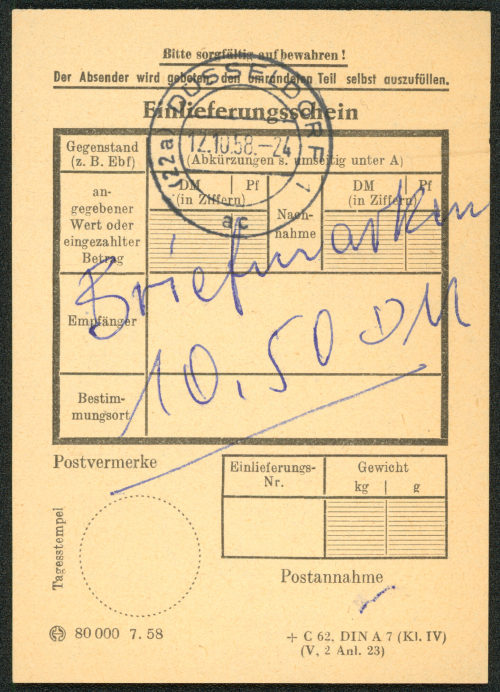 Bitte sorgfältig aufbewahren !
Der Absender wird gebeten, den umrandeten Teil selbst auszufüllen.
Einlieferungsschein
(22a) DÜSSELDORF 1
12.10.58.-24
ac
Gegenstand
(z. B. Ebf)
(Abkürzungen s. umseitig unter A)
an-
gegebener
Wert oder
eingezahlter
Betrag
DM
(in Ziffern)
Pf
Nach-
nahme
DM
(in Ziffern)
Pf
Briefmarken
Empfänger
10.50 DM
Bestim-
mungsort
Postvermerke
Einlieferungs-
Nr.
Gewicht
kg
g
Tagesstempel
Postannahme
80 000 7. 58
+ C 62, DIN A 7 (Kl. IV)
(V, 2 Anl. 23)